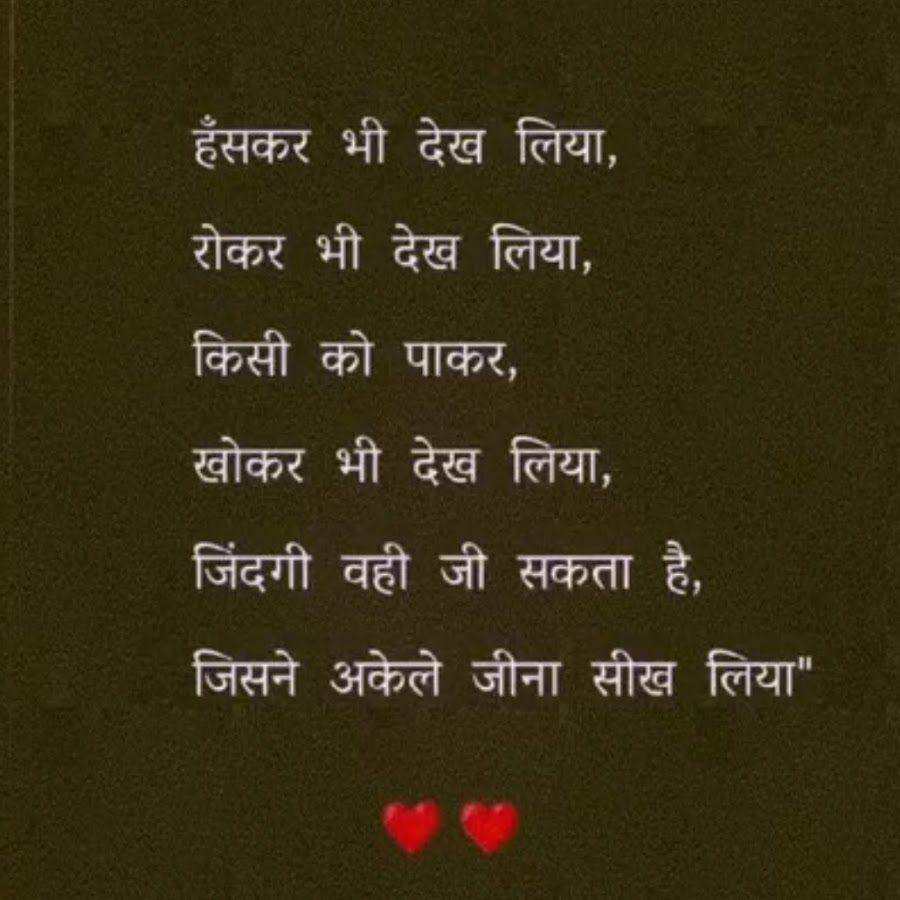 हँसकर भी देख लिया,
रोकर भी देख लिया,
किसी को पाकर,
खोकर भी देख लिया,
जिंदगी वही जी सकता है,
जिसने अकेले जीना सीख लिया"